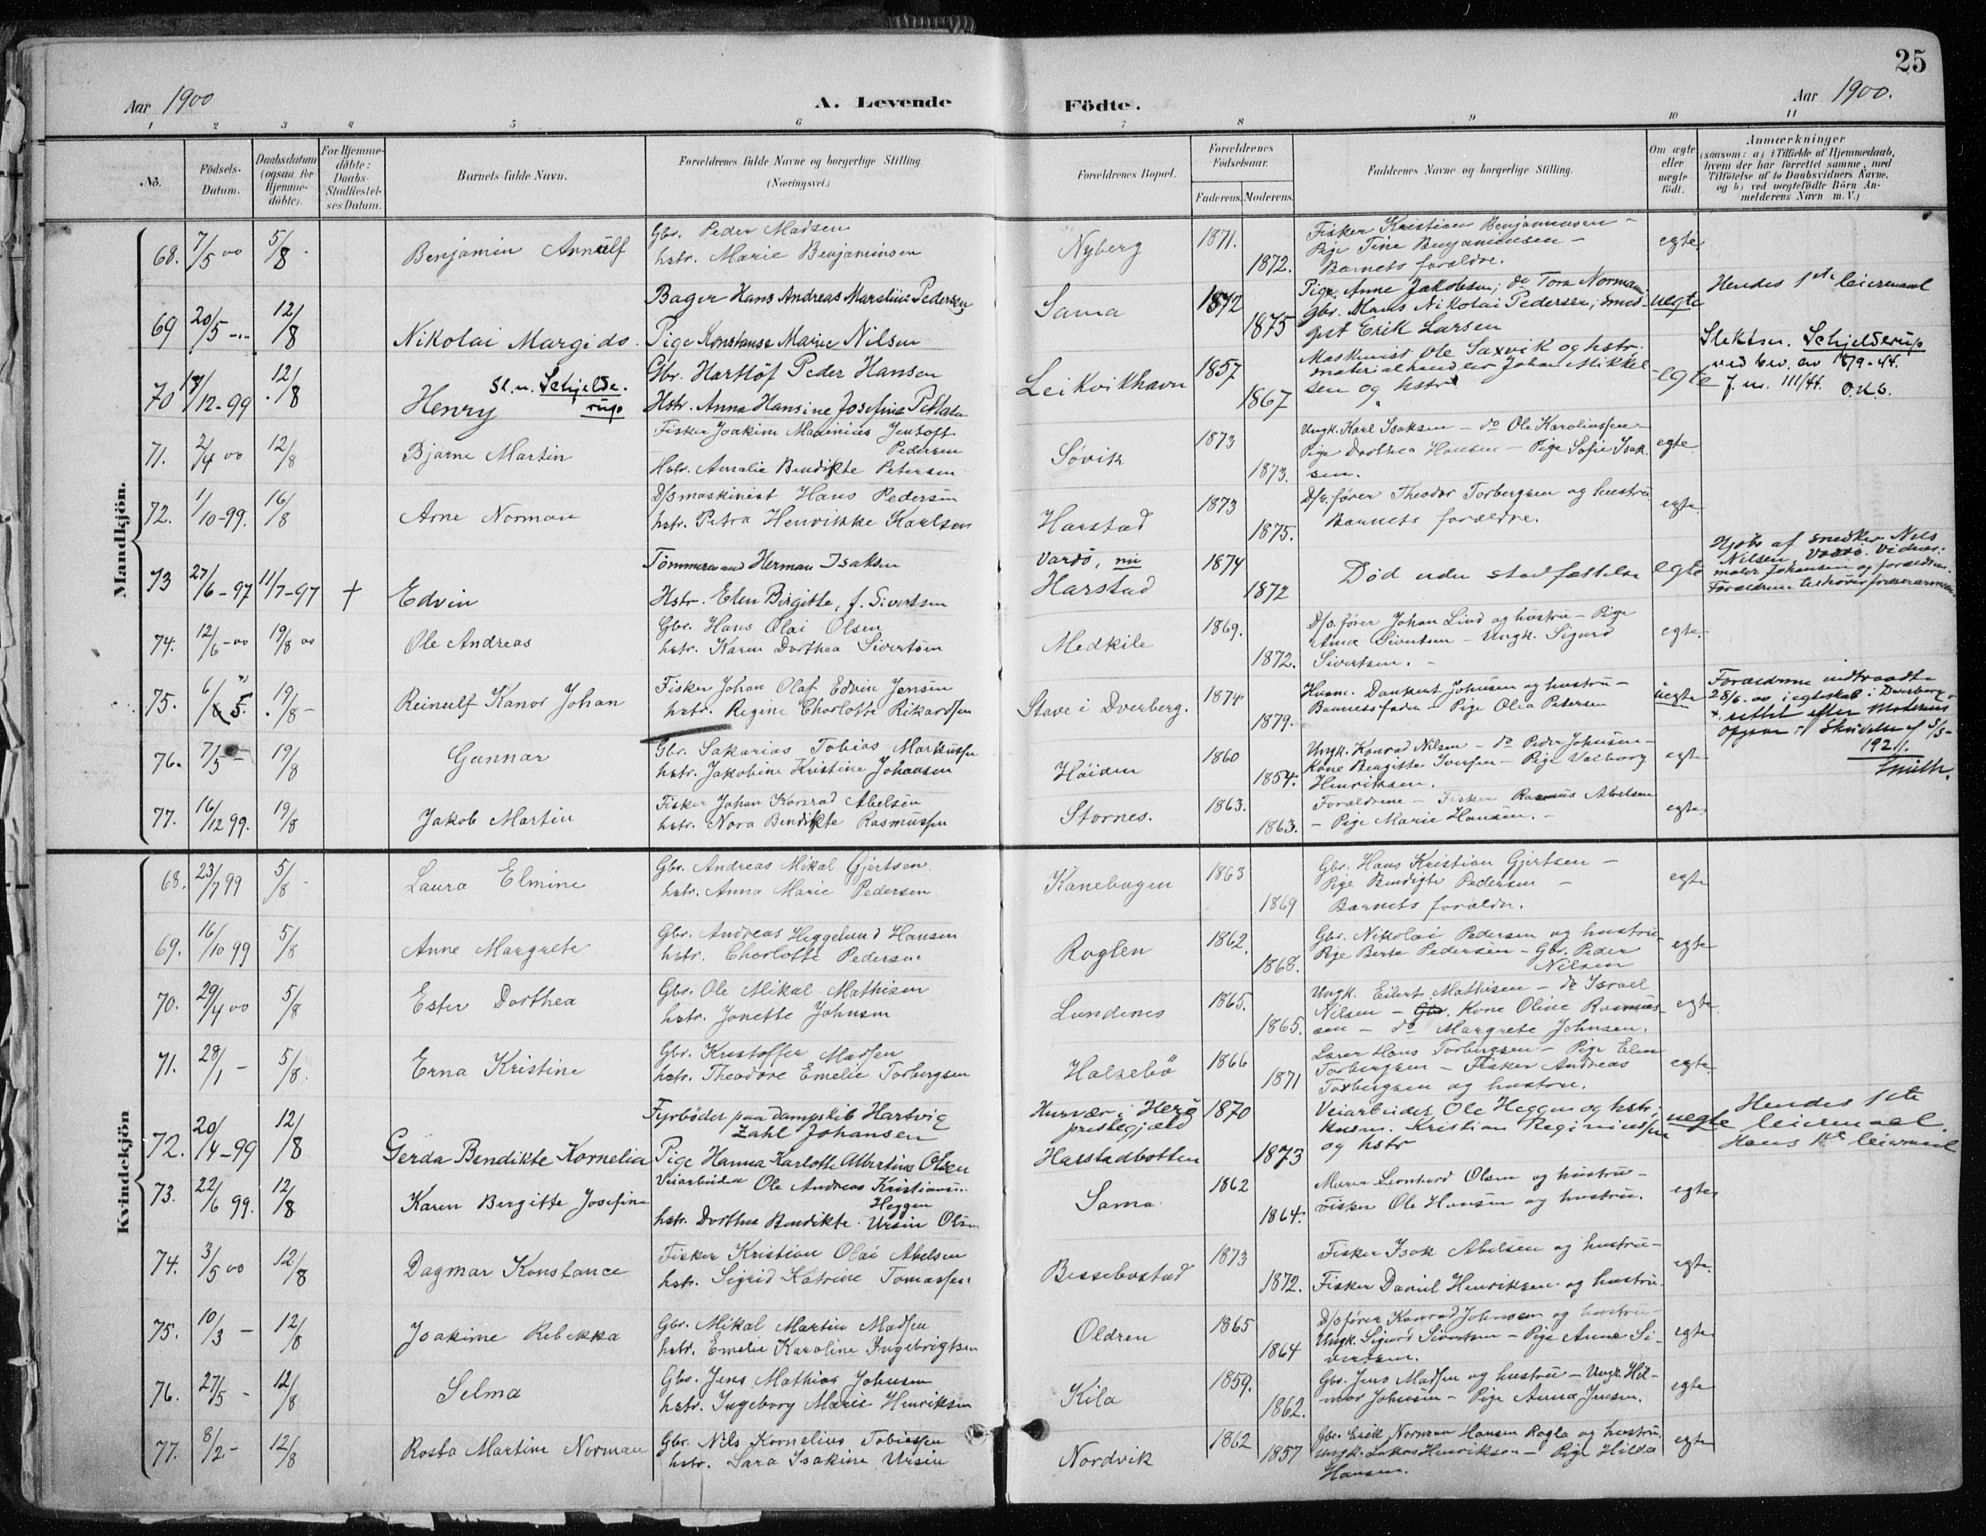 25
Aar 1900 A. Levende Födte. Aar 1900.
1 2 3 4 5 6 7 8 9 10 11
No. Födsels-Datum. Daabsdatum (ogsaa for Hjemmedöbte). For Hjemmedöbte: Daabs-Stadfæstelses Datum. Barnets fulde Navn. Forældrenes fulde Navne og borgerlige Stilling. (Næringsvei.) Forældrenes Bopæl. Forældrenes Födselsaar. Faderens. Moderens. Faddernes Navne og borgerlige Stilling. Om ægte eller uægte födt. Anmærkninger (saasom: a) i Tilfælde af Hjemmedaab, hvem der har forrettet samme, med Tilföielse af to Daabsvidners Navne, og b) ved uægtefödte Börn Anmelderens Navn m. V.)
Mandkjön.
68. 7/5 00 5/8 Benjamin Arnulf Gbr. Peder Madsen
hstr. Marie Benjaminsen Nyberg 1871. 1872. Fisker Kristian Benjaminsen –
Pige Tine Benjaminsen –
Barnets forældre. egte
69 20/5 -"- 12/8 Nikolai Margido. Bager Hans Andreas Marelius Pedersen
Pige Konstanse Marie Nilsen Sama 1872 1875 Pige Anne Jakobsen, do Tora Norman,
Gbr. Hans Nikolai Pedersen, smed-
gut Erik Larsen uegte Hendes 1ste leiermaal
70 12-99 12/8 Henry Sl.n. Schjelderup Gbr. Hartlöf Peder Hansen
Hstr. Anna Hansine Josefine Leikvikhavn 1857 1867 Maskinist Ole Saxvik og hstr.
materialhandler Johan Mikkel-
sen og hstr egte Slektsn. Schjelderup
ved bev. av 18/9-44.
J. nr. 111/44. O.K.S.
71. 2/4 00 12/8 Bjarne Martin Fisker Joakim Jentoft
Pedersen
Hstr. Amalie Bendikte Petersen Sövik 1873 1873. Ungk. Karl Isaksen – do Ole Karoliussen –
Pige Dorthea Hansen – Pige Sofie Isak-
sen. egte
72. 1/10-99. 16/8 Arne Norman D/smaskinist Hans Pedersen
hstr. Petra Henrikke Karlsen Harstad 1873 1875. D/s.förer Theodor Torbergsen og hustru
Barnets forældre. egte.
73 27/6-97 11/7-97 + Edvin Tömmermand Herman Isaksen
Hstr. Elen Birgitte, f. Sivertsen Vardö, nu
Harstad 1874 1872 Död uden stadfæstelse egte Hjdbt af snedker Nils
Nilsen, Vardö. Vidner:
maler Johansen og forældrene.
74. 12/6-00 19/8 00 Ole Andreas Gbr. Hans Olai Olsen
hstr. Karen Dorthea Sivertsen Medkile 1869. 1872. D/s.förer Johan Lind og hustru – Pige
Anna Sivertsen – Ungk. Sigurd
Sivertsen. – egte.
75. 6/5. 19/8 – Reinulf Kanor Johan Fisker Johan Olaf Edvin Jensen
hstr. Regine Charlotte Rikardsen Stave i Dverberg. 1874 1879. Husm. Dankert Johnsen og hustru –
Barnets fader – Pige Olea Petersen uegte Forældrene indtraadte
28/6. 00 i egteskab i Dverberg.
rettet efter Moderens
Opgave i Skrivelse af 5/5-
1921.
Smith.
76. 7/5 – 19/8 Gunnar Gbr. Sakarias Tobias Markussen
hstr. Jakobine Kristine Johansen Höiden 1860 1854. Ungk. Konrad Nilsen – do Peder Johnsen –
Kone Bengitte Iversen – Pige Valborg
Henriksen. egte
77. 16/12 99. 19/8 Jakob Martin Fisker Johan Konrad Abelsen
hstr. Nora Bendikte Rasmussen Stornes. 1863. 1863. Forældrene – Fisker Rasmus Abelsen
– Pige Marie Hansen. – egte.
Kvindekjön
68. 23/7 99 5/8 Laura Elmine Gbr. Andreas Mikal Gjertsen.
hstr. Anna Marie Pedersen Kanebogen 1863 1869 Gbr. Hans Kristian Gjertsen –
Pige Bendigte Pedersen –
Barnets forældre. egte
69. 16/10 99 5/8 Anne Margrete Gbr. Andreas Heggelund Hansen
hstr. Charlotte Pedersen Roglen 1862. 1868. Gbr. Nikolai Pedersen og hustru –
Pige Berta Pedersen – Gbr. Peder
Nilsen egte
70. 29/4 00 5/8 Ester Dorthea Gbr. Ole Mikal Mathisen
hstr. Jonette Johnsen Lundenes 1865. 1865. Ungk. Eilert Mathisen – do Israel
Nilsen – Gbr. Kone Oline Rasmus-
sen – do Margrete Johnsen. egte
71. 28/1 – 5/8. Erna Kristine Gbr. Kristoffer Madsen
hstr. Theodore Emelie Torbergsen Halsebö 1866 1871 Lærer Hans Torbergsen – Pige Elen
Torbergsen – Fisker Andreas
Torbergsen og hustru. egte
72. 20/4-99 12/8 Gerda Bendikte Kornelia Fyrböder paa dampskib Hartvig
Zahl Johansen
Pige Hanna Karlotte Albertine Olsen Husvær i Herö
prestegjeld
Harstadbotten 1870 1873 Veiarbeider Ole Heggen og hstr,
husm. Kristian Reginiussen
og hstr uegte Hendes 1ste
leiermaal.
Hans 1ste leiermaal
73. 22/6 99. 12/8 Karen Bergitte Josefine Veiarbeider Ole Andreas Kristiansen
Heggen
hstr. Dorthea Bendikte Ursin Olsen Sama 1862 1864. Murer Leonhard Olsen og hustru –
Fisker Ole Hansen og hustru. egte
74. 3/5 00 12/8 Dagmar Konstance Fisker Kristian Olai Abelsen
hstr. Sigrid Katrine Tomassen Bessebostad 1873 1872. Fisker Isak Abelsen og hustru –
Fisker Daniel Henriksen og hustru. egte.
75. 10/3 – 12/8 Joakime Rebekka Gbr. Mikal Martin Madsen
hstr. Emelie Karoline Ingebrigtsen Oldren 1865 1864 D/sförer Konrad Johnsen og hustru –
Ungk. Sigurd Sivertsen – Pige Anna Si-
vertsen. egte
76. 27/5 – 12/8 Selma Gbr. Jens Mathias Johnsen
hstr. Ingeborg Marie Henriksen Kila 1859. 1862. Gbr. Jens Madsen og hustru – Ungk. Hil-
mar Johnsen – Pige Anna Jensen. egte
77. 8/2 – 12/8 Rosta Martine Norman Gbr. Nils Kornelius Tobiassen
hstr. Sara Isakine Ursin Nordvik 1862 1857 Gbr. Erik Norman Hansen Rogla og hustru
Ungk. Lukas Henriksen – Pige Hilda
Hansen. egte